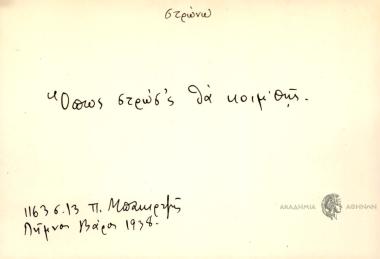 στρώνω
Ὅπως στρώσ'ς θὰ κοιμ'θῇς.
1163 σ. 13 Π. Μπακιρτζῆς
Λῆμνος Βάρος 1938.
ΑΚΑΔΗΜΙΑ ΑΘΗΝΩΝ